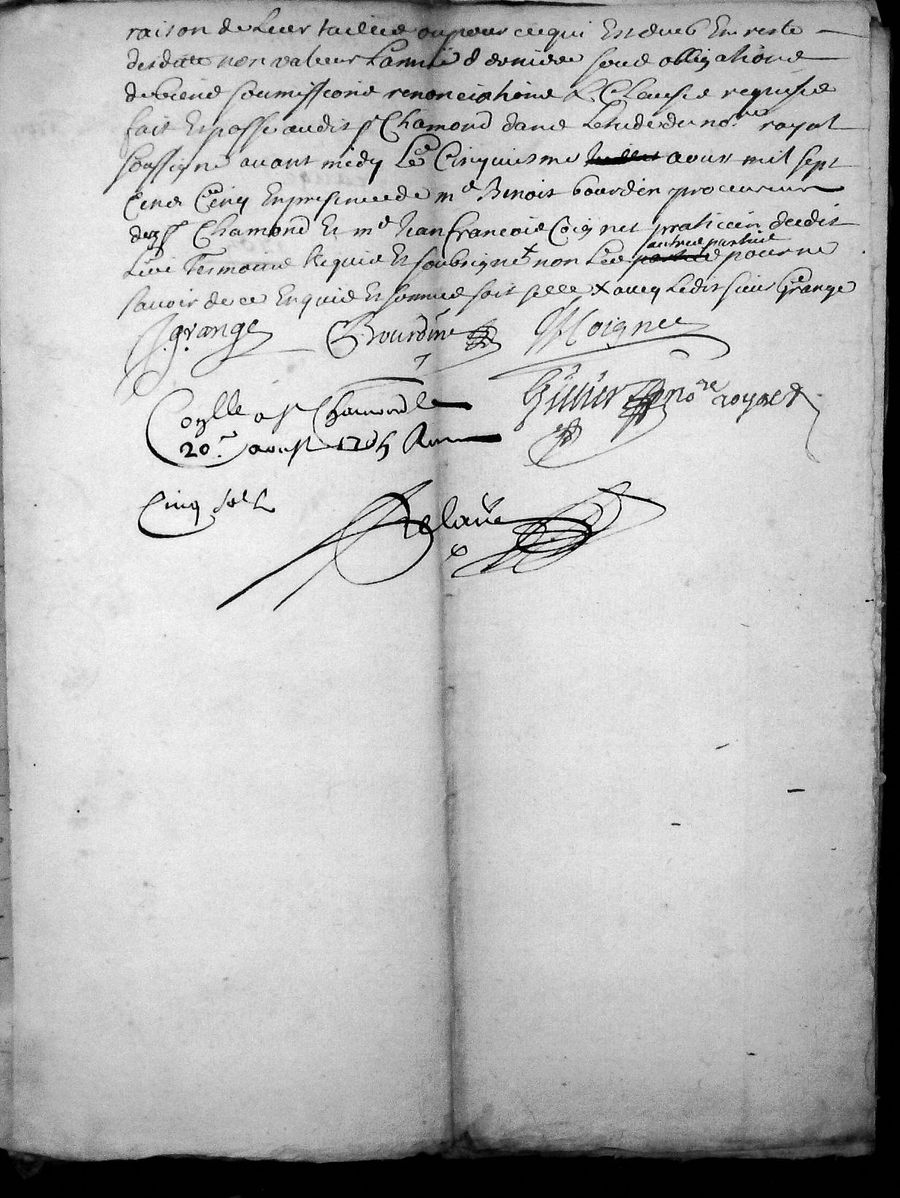 raison de leur taillies ou pour ce qui est dub en reste
non valeur l'année derniere sous obligations
de biens soumissions renonciations & clauses requises
fait et passé audit st Chamond dans l'etude du no.re royal
soussigné avant midy le cinquiesme aoust mil sept
cens cinq en presence de me Benoit Bourdin procureur
dudt st Chamond et me Jean Francois Coignet praticien dudit
lieu tesmoins requis et soubsignes x non les
autres parties
pour ne
savoir de ce enquis et sommes soit selle x avecq ledit sieur Grange
J. grange Bourdin Coignet
Conlle a st Chamond le
20.e aoust 1705 Reçu
Cinq sols
no.re royal